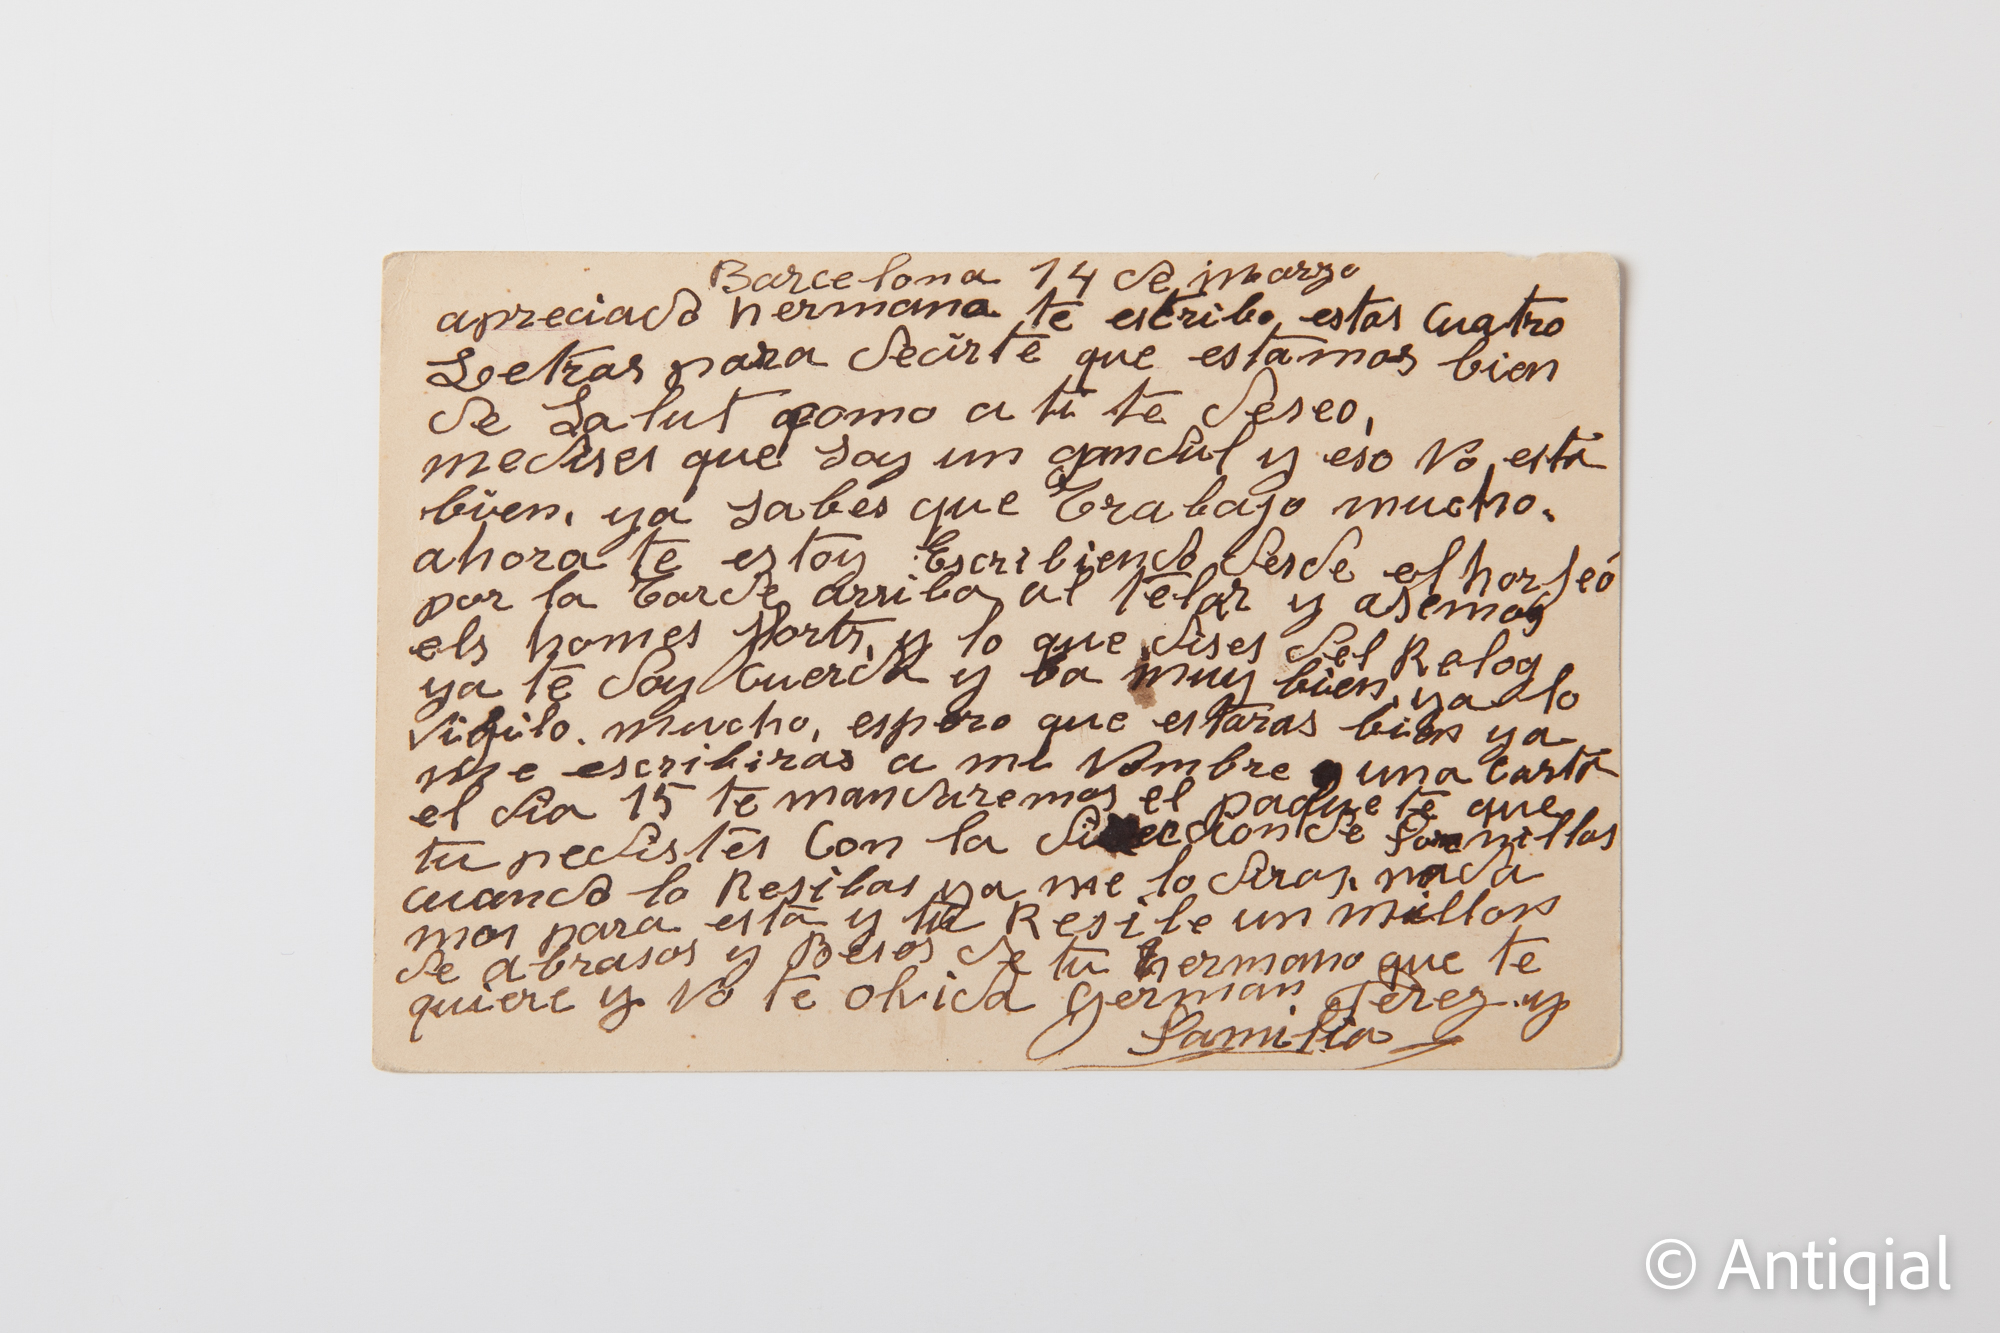 Barcelona 14 de marzo
apreciado hermano te escribo estas cuatro
Letras para decirte que estamos bien
de Salut como a ti te deseo,
medises que soy un gandul y eso No está
bien. ya sabes que Trabajo mucho.
ahora te estoy Escribiendo desde el
por la Tarde arriba al telar y asemos
els homes forts, y lo que dises del Relog
ya te doy cuerda y ba muy bien, ya lo
vigilo. mucho, espero que estaras bien ya
me escribiras a mi Nombre una carta
el dia 15 te mandaremos el paquete que
tu pedistes Con la de
cuando lo Resibas ya me lo diras. nada
mos para está y tu Resibe un millon
de abrasos y Besos de tu hermano que te
quiere y No te olvida German Perez y
familia
© Antiqial